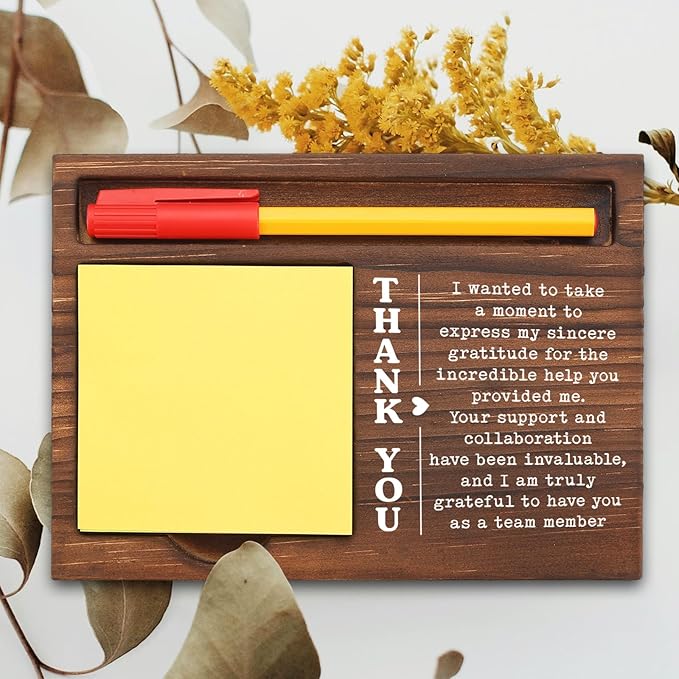 THANK YOU
I wanted to take
a moment to
express my sincere
gratitude for the
incredible help you
provided me.
Your support and
collaboration
have been invaluable,
and I am truly
grateful to have you
as a team member